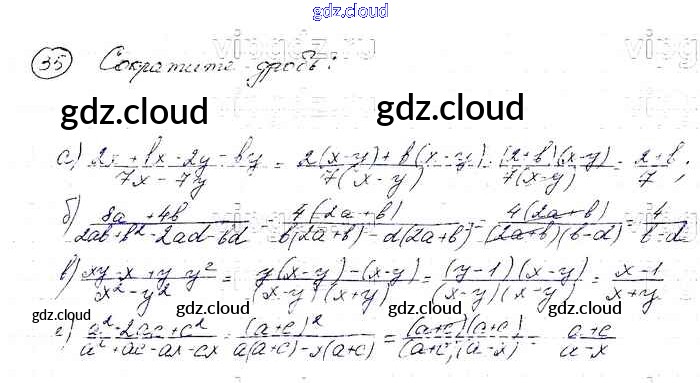 gdz.cloud
35 Сократите дробь:
gdz.cloud gdz.cloud
а) (2x + bx - 2y - by)/(7x - 7y) = (2(x-y) + b(x-y))/(7(x-y)) = ((2+b)(x-y))/(7(x-y)) = (2+b)/7;
б) (8a + 4b)/(2ab + b² - 2ad - bd) = (4(2a+b))/(b(2a+b) - d(2a+b)) = (4(2a+b))/((2a+b)(b-d)) = 4/(b-d)
в) (xy - x + y - y²)/(x² - y²) = (y(x-y) - (x-y))/((x-y)(x+y)) = ((y-1)(x-y))/((x-y)(x-y)) = (x-1)/(x+y)
gdz.cloud gdz.cloud gdz.cloud
г) (a² - 2ac + c²)/(a² + ac - ax - cx) = (a+c)²/(a(a+c) - x(a+c)) = ((a+c)(a+c))/((a+c)(a-x)) = (a+c)/(a-x)